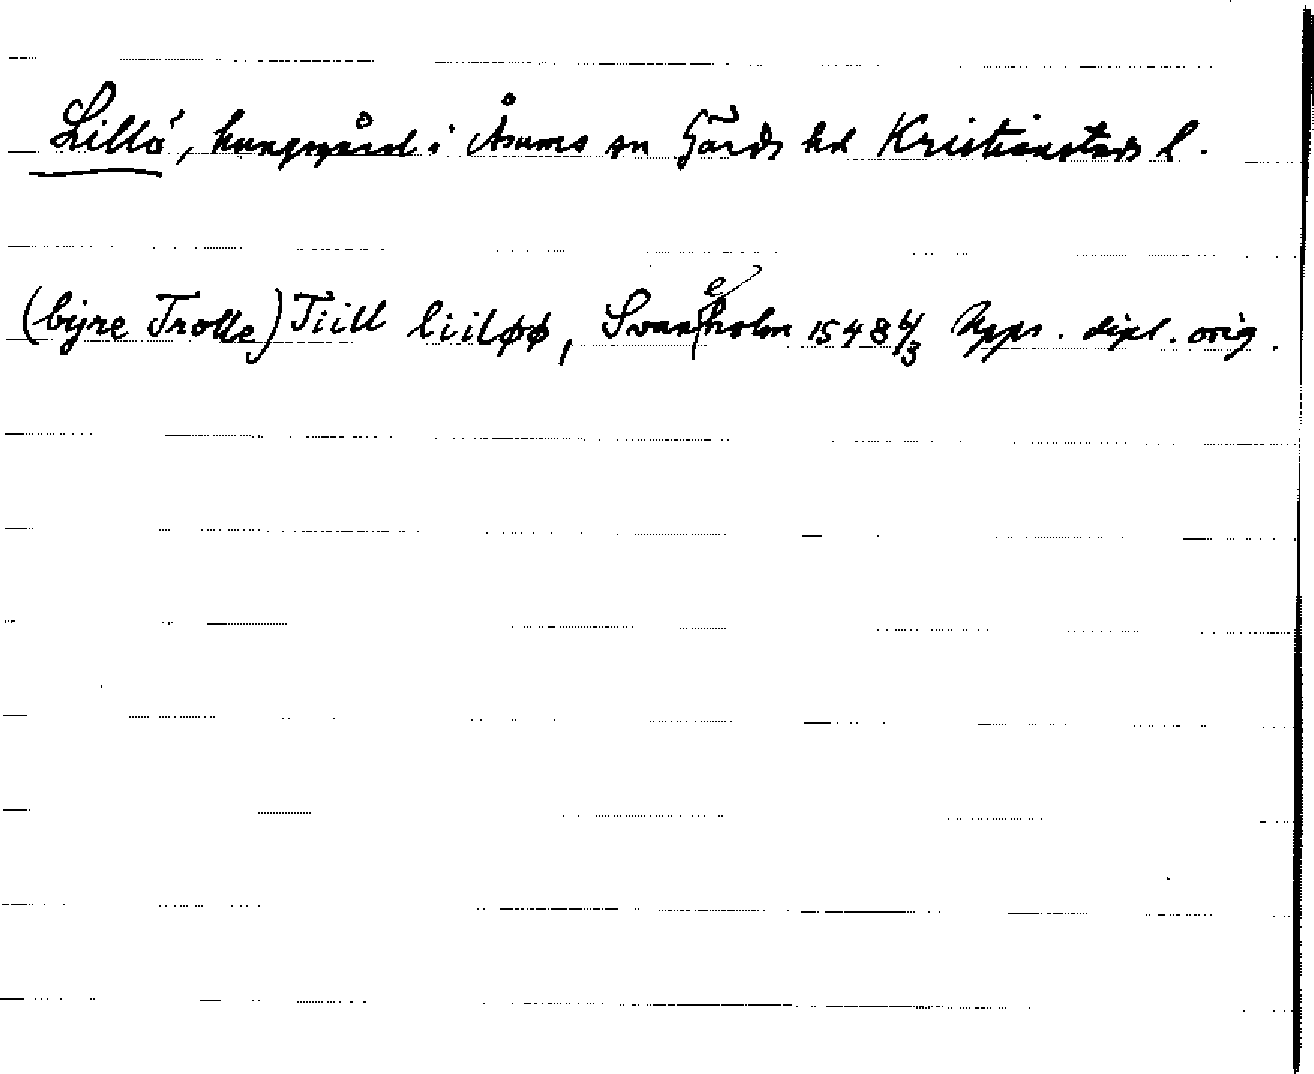 Lillö, kungsgård i Åsums sn Gärds hd Kristianstads l.
(bijre Trolle) Tiill liiløø, Svaneholm 1548 4/3 Upps. dipl. orig.